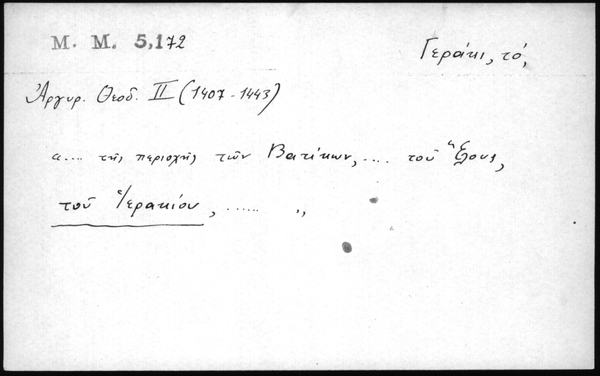 M. M. 5,172
Γεράκι, τό,
Ἀργυρ. Θεοδ. II (1407-1443)
α.... τῆς περιοχῆς τῶν Βατίκων, .... τοῦ Ἕλους,
τοῦ Ἱερακίου, ...... ,,